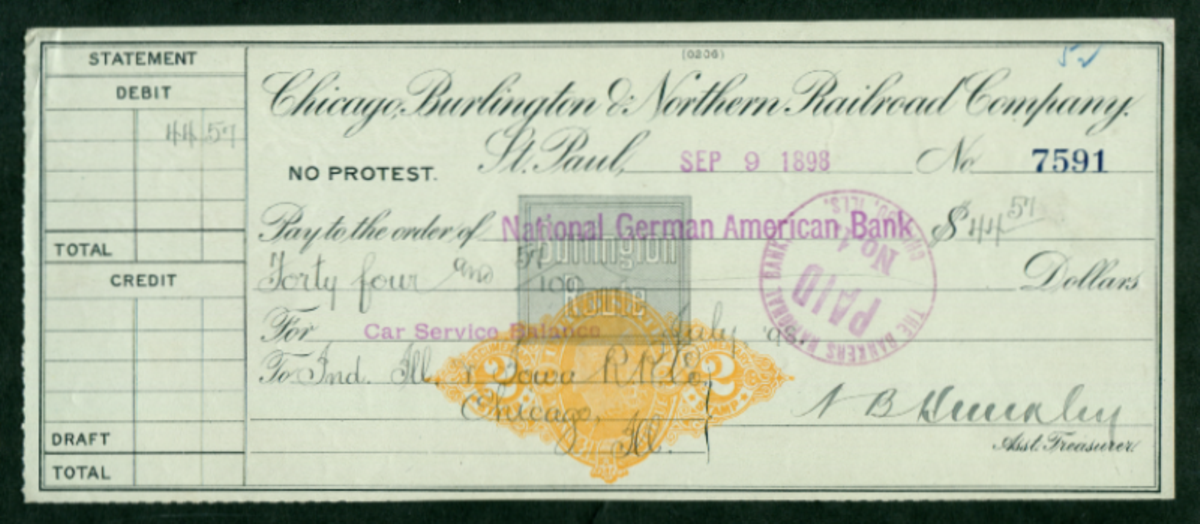 STATEMENT
DEBIT
44 57
TOTAL
CREDIT
DRAFT
TOTAL
(0206)
52
Chicago, Burlington & Northern Railroad Company.
St. Paul, SEP 9 1898 No 7591
NO PROTEST.
Pay to the order of National German American Bank $ 44 57
Burlington
Route
Forty four and 57/100 Dollars
For Car Service Balance July, 98.
To Ind. Ill. & Iowa R.R. Co.
Chicago,
Ill.
2 2
THE BANKERS NATIONAL BANK
PAID
No. 4
CHICAGO, ILLS.
N B Hinckley
Asst. Treasurer.